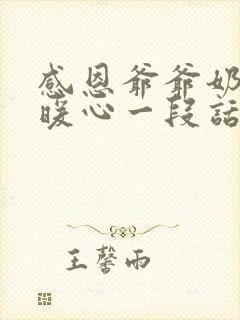 感恩爷爷奶
暖心一段话
王馨雨